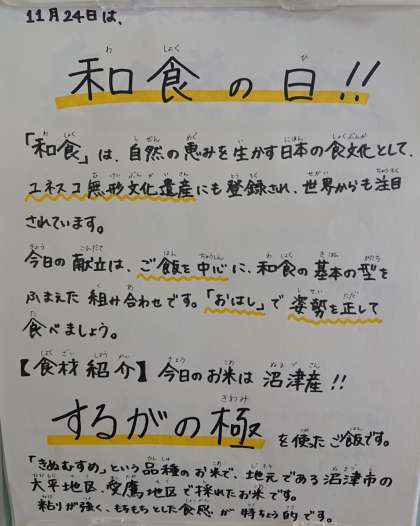 11月24日は、
和食の日!!
「和食」は、自然の恵みを生かす日本の食文化として、
ユネスコ無形文化遺産にも登録され、世界からも注目
されています。
今日の献立は、ご飯を中心に、和食の基本の型を
ふまえた組み合わせです。「おはし」で姿勢を正して
食べましょう。
【食材紹介】今日のお米は沼津産!!
するがの極を使たご飯です。
「きぬむすめ」という品種のお米で、地元である沼津市の
大平地区、愛鷹地区で採れたお米です。
粘りが強く、もちもちとした食感が特ちょう的です。